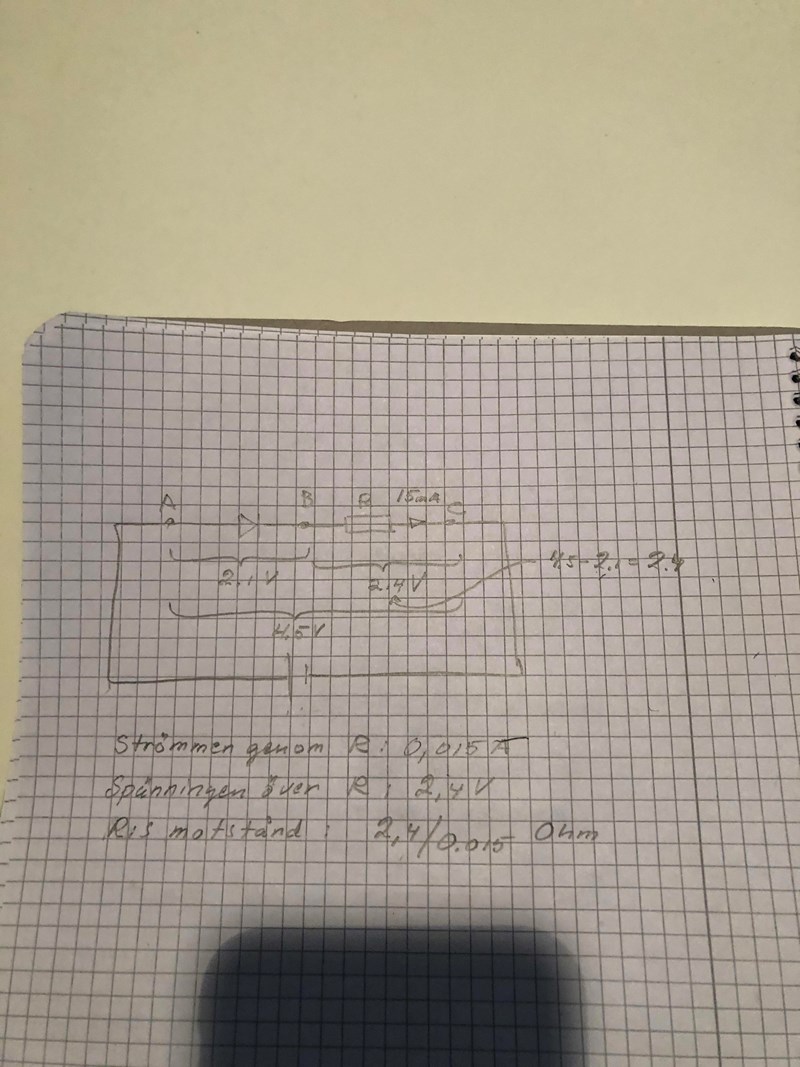 A B R 15mA C
2.1 V 2.4 V 4.5-2.1=2.4
4.5V
Strömmen genom R: 0,015 A
Spänningen över R: 2,4 V
R:s motstånd: 2,4/0.015 Ohm